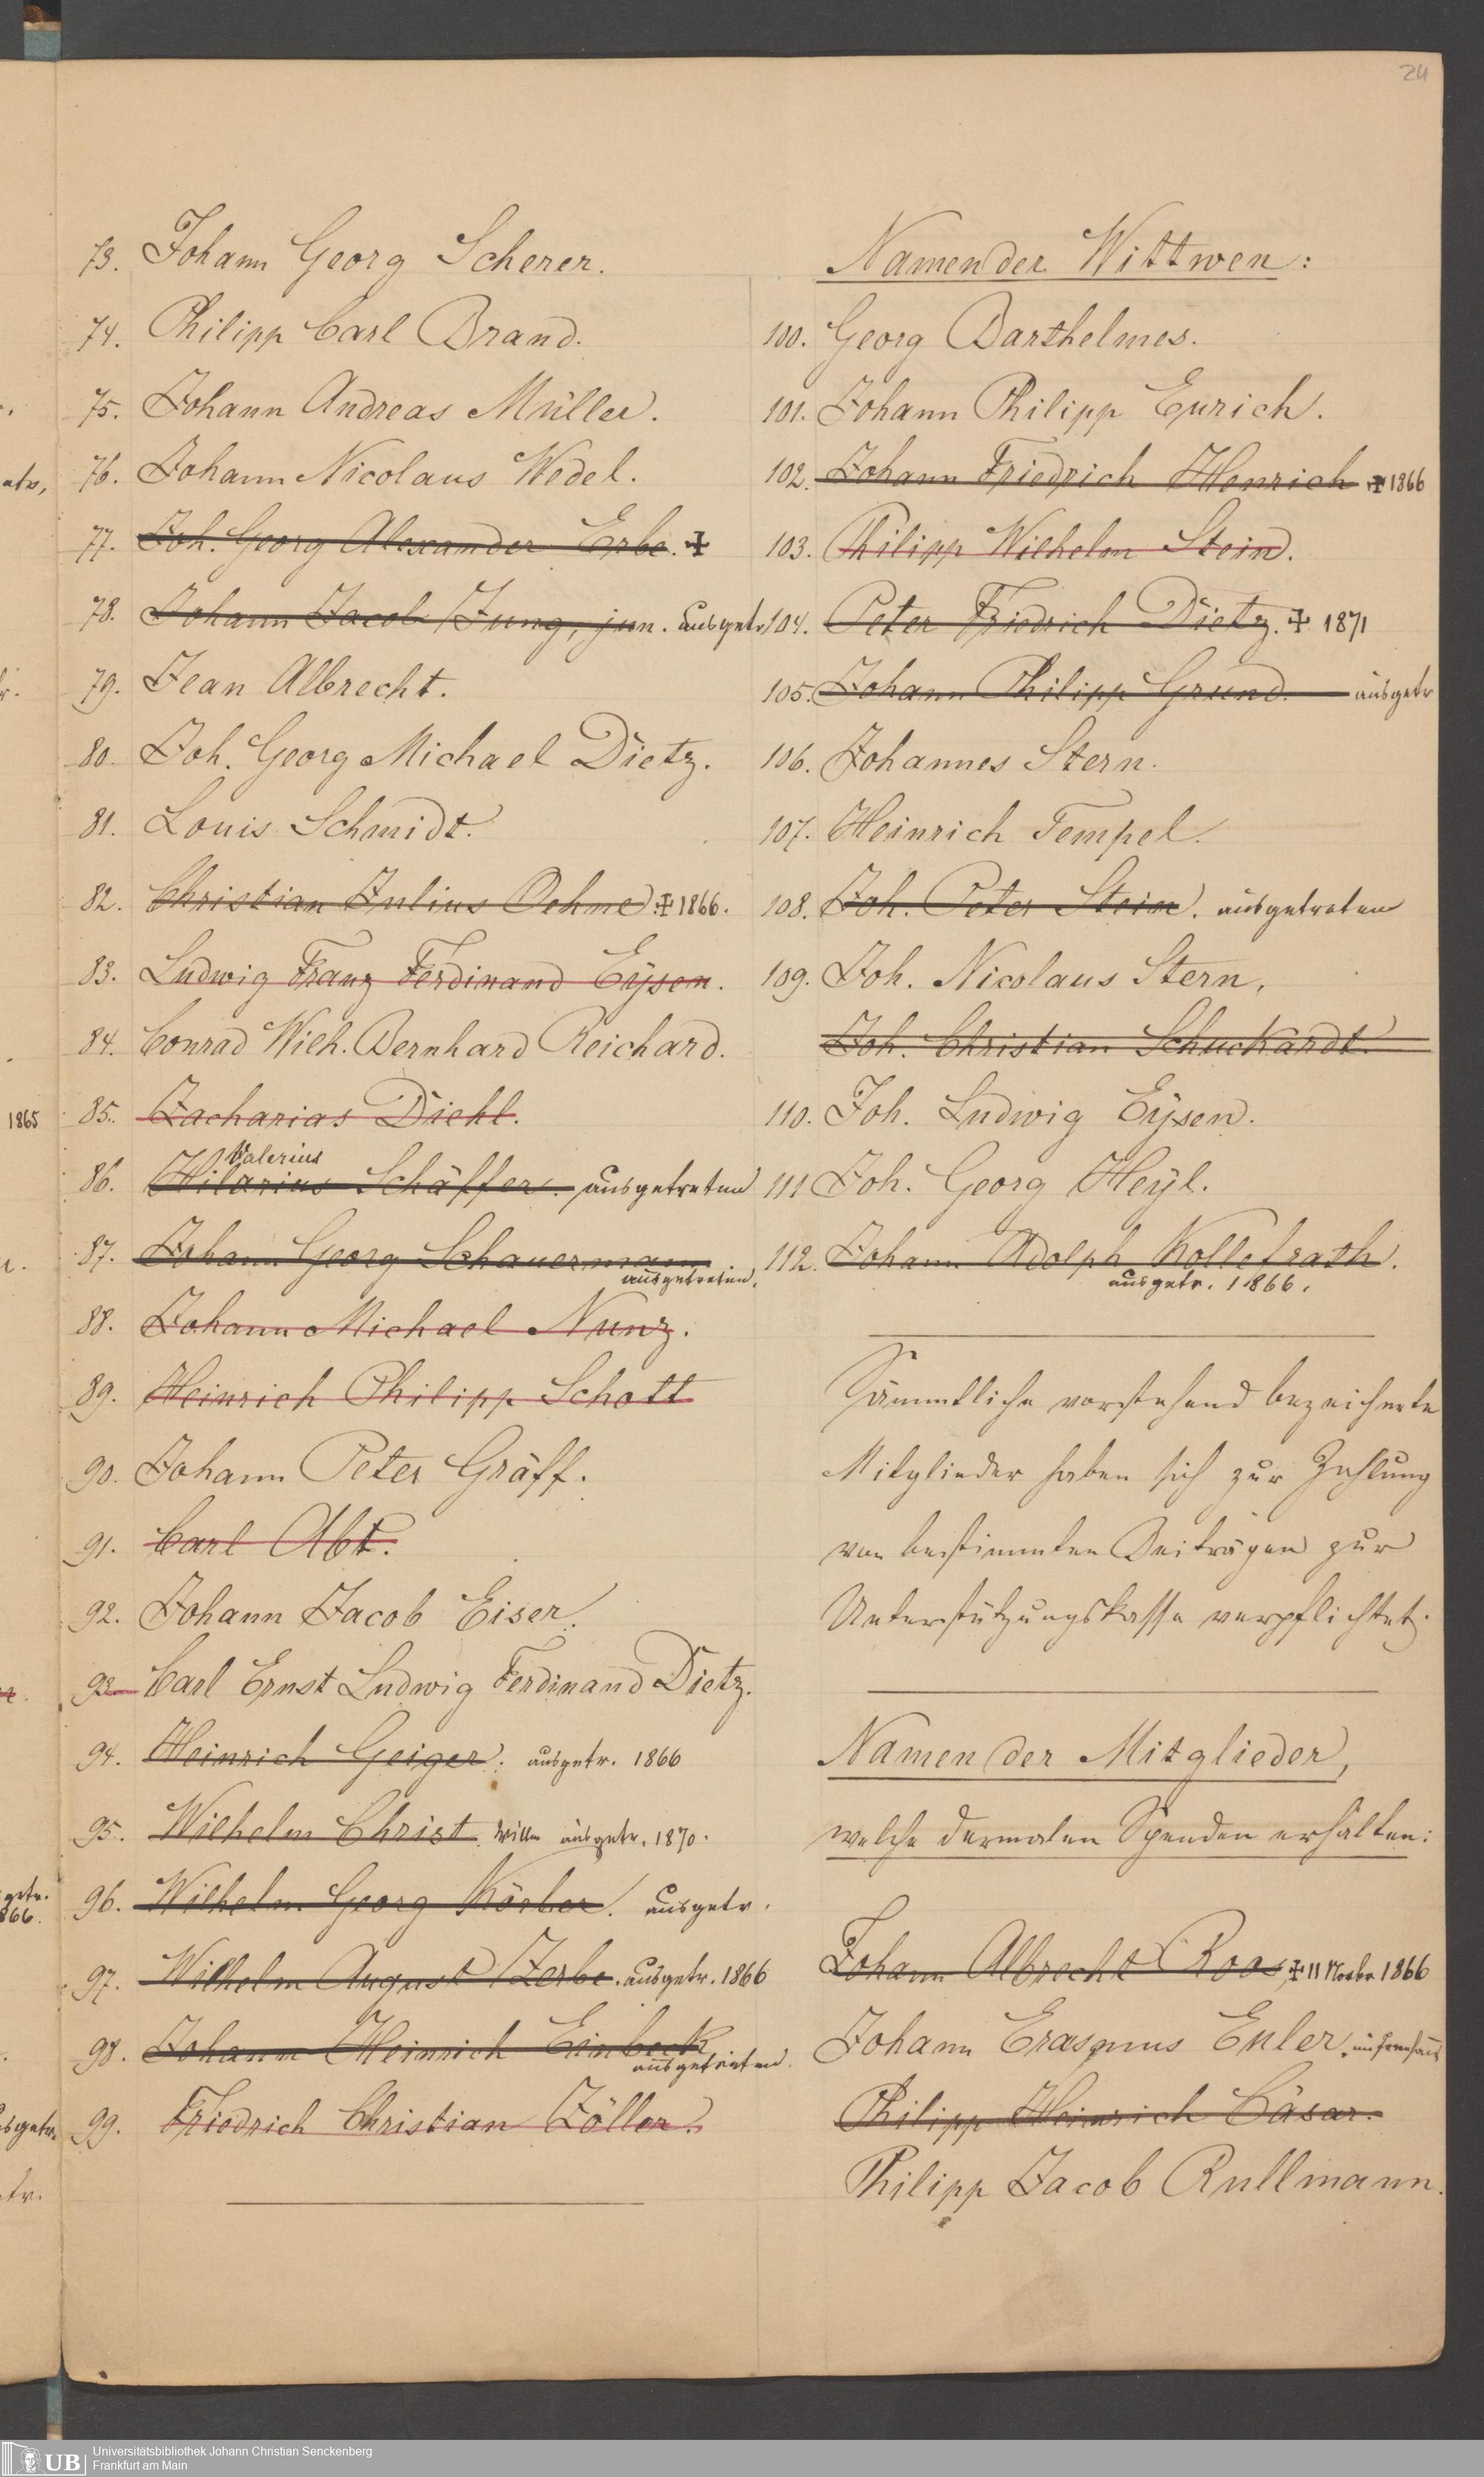 24
73. Johann Georg Scherer.
74. Philipp Carl Brand.
75. Johann Andreas Müller.
76. Johann Nicolaus Wedel.
77. Joh. Georg Alexander Erbe. ✠
78. Johann Jacob Jung, jun. ausgetr
79. Jean Albrecht.
80. Joh. Georg Michael Dietz.
81. Louis Schmidt.
82. Christian Julius Oehme. ✠ 1866.
83. Ludwig Franz Ferdinand Eysen.
84. Conrad Wilh. Bernhard Reichard.
85. Zacharias Diehl.
Valerius
86. Hilarius Schäffer. ausgetreten
87. Johann Georg Schauermann
ausgetreten.
88. Johann Michael Nunz.
89. Heinrich Philipp Schott
90. Johann Peter Gräff.
91. Carl Abt.
92. Johann Jacob Eiser.
93. Carl Ernst Ludwig Ferdinand Dietz.
94. Heinrich Geiger. ausgetr. 1866
95. Wilhelm Christ. ausgetr. 1870.
96. Wilhelm Georg Körber. ausgetr.
97. Wilhelm August Zerbe. ausgetr. 1866
98. Johann Heinrich Einbeck
ausgetreten.
99. Friedrich Christian Zöller.
Namen der Wittwen:
100. Georg Barthelmes.
101. Johann Philipp Eurich.
102. Johann Friedrich Henrich ✠ 1866
103. Philipp Wilhelm Stein.
104. Peter Friedrich Dietz. ✠ 1871
105. Johann Philipp Grund. ausgetr
106. Johannes Stern.
107. Heinrich Tempel.
108. Joh. Peter Stein. ausgetreten
109. Joh. Nicolaus Stern.
Joh. Christian Schuckardt.
110. Joh. Ludwig Eysen.
111 Joh. Georg Heyl.
112. Johann Adolph Kollefrath.
ausgetr. 1866.
Sämmtliche vorstehend bezeichnete
Mitglieder haben sich zur Zahlung
von bestimmten Beiträgen zur
Unterstützungskasse verpflichtet.
Namen der Mitglieder,
welche dermalen Spenden erhalten:
Johann Albrecht Roos, ✠ 11 Novbr 1866
Johann Erasmus Euler.
Philipp Heinrich Cäsar.
Philipp Jacob Rullmann.
1865
UB
Universitätsbibliothek Johann Christian Senckenberg
Frankfurt am Main